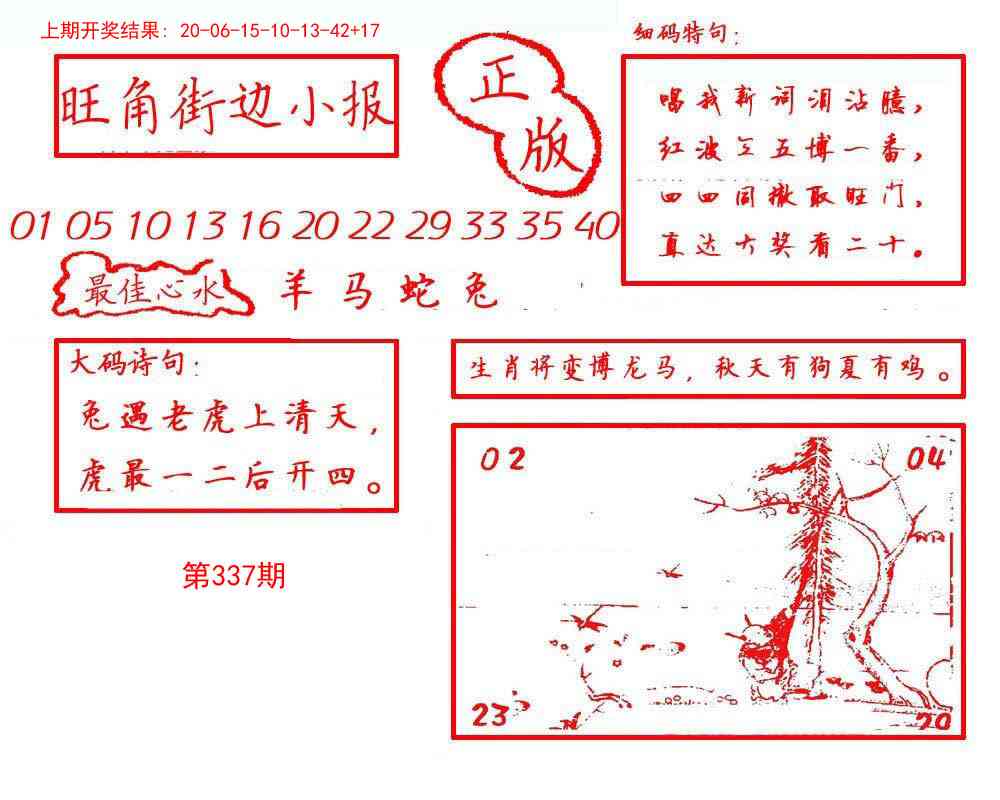 上期开奖结果: 20-06-15-10-13-42+17
旺角街边小报
正版
细码特句：
唱我新词泪沾臆，
红波 五博一番，
四四同撤取旺门，
直达大奖看二十。
01 05 10 13 16 20 22 29 33 35 40
最佳心水
羊马蛇兔
大码诗句：
兔遇老虎上清天，
虎最一二后开四。
生肖将变博龙马，秋天有狗夏有鸡。
02
04
23
20
第337期